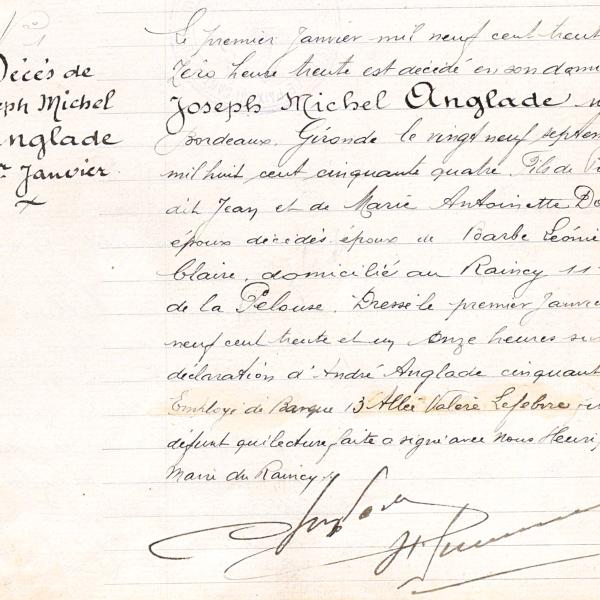 Décès de
Joseph Michel
Anglade
1er Janvier
Le premier Janvier mil neuf cent trente
Zéro heure trente est décédé en son domi
Joseph Michel Anglade n
Bordeaux. Gironde le vingt neuf septem
mil huit cent cinquante quatre. Fils de
dit Jean et de Marie Antoinette Do
époux décédés époux de Barbe Léonie
Claire, domicilié au Raincy 11
de la Pelouse. Dressé le premier Janvier
neuf cent trente et un onze heures sur
déclaration d'André Anglade cinquant
Employé de Banque 13 Allée Valère Lefebvre
défunt qui lecture faite a signé avec Nous Henri
Maire du Raincy